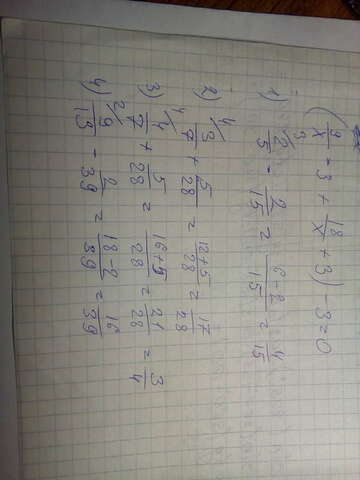 (9/x - 3 + 18/x + 3) - 3 = 0
1) 3/ 2/5 - 2/15 = 6-2/15 = 4/15
2) 4/ 3/7 + 5/28 = 12+5/28 = 17/28
3) 4/ 4/7 + 5/28 = 16+5/28 = 21/28 = 3/4
4) 2/ 9/13 - 2/39 = 18-2/39 = 16/39